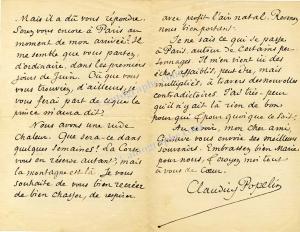 Mais il a dû vous répondre.
Serez vous encore à Paris au
moment de mon arrivée? Il
me semble que vous partez,
d'ordinaire, dans les premiers
jours de Juin. Où que vous
vous trouviez, d'ailleurs,
vous ferai part de ce que le
prince m'aura dit.
Nous avons une rude
chaleur. Que sera ce dans
quelques semaines! La Corse
vous en réserve autant; mais
la montagne est là. Je vous
souhaite de vous bien recréer
de bien chasser, de respirer
avec profit l'air natal. Revenez
nous bien portant.
Je ne sais ce qui se passe
à Paris autour de certains per-
sonnages. Il m'en vient ici des
échos affaiblis, peut être, mais
multipliés, à travers des nouvelles
contradictoires. Pas trop peur
qu'il n'y ait là rien de bon
pour qui que ce soit!
Au revoir, mon cher ami,
vous envoie ses meilleurs
souvenirs. Embrassez bien Marie
pour nous, et croyez moi tout
à vous de cœur.
Claudius Popelin